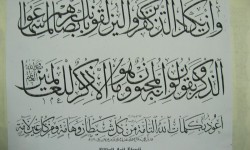 وإن يكاد الذين كفروا ليزلقونك بأبصارهم لما سمعوا
الذكر ويقولون إنه لمجنون وما هو إلا ذكر للعالمين
أعوذ بكلمات الله التامة من كل شيطان وهامة ومن كل عين لامة